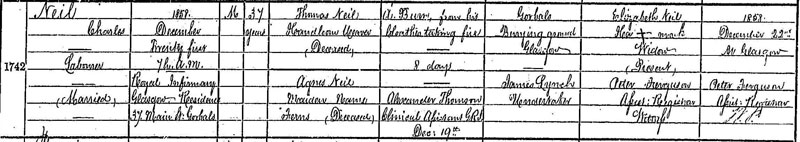 Neil
Charles
1742
Labourer
(Married)
1858.
December
Twenty first
7h. A.M.
Royal Infirmary
Glasgow - Residence
37 Main St. Gorbals
M
37
years
Thomas Neil
Handloom Weaver
(Deceased)
Agnes Neil
Maiden Name
Ferns (Deceased)
Burn, from his
Clothes taking fire
8 days
Alexander Thomson
Clinical Assistant G.R.I.
Dec: 19th
Gorbals
Burying ground
Glasgow
James Lynch
Undertaker
Elizabeth Neil
Her + mark
Widow
(Present)
Peter Ferguson
Assist: Registrar
Witness
1858.
December 22nd
At Glasgow
Peter Ferguson
Assist: Registrar